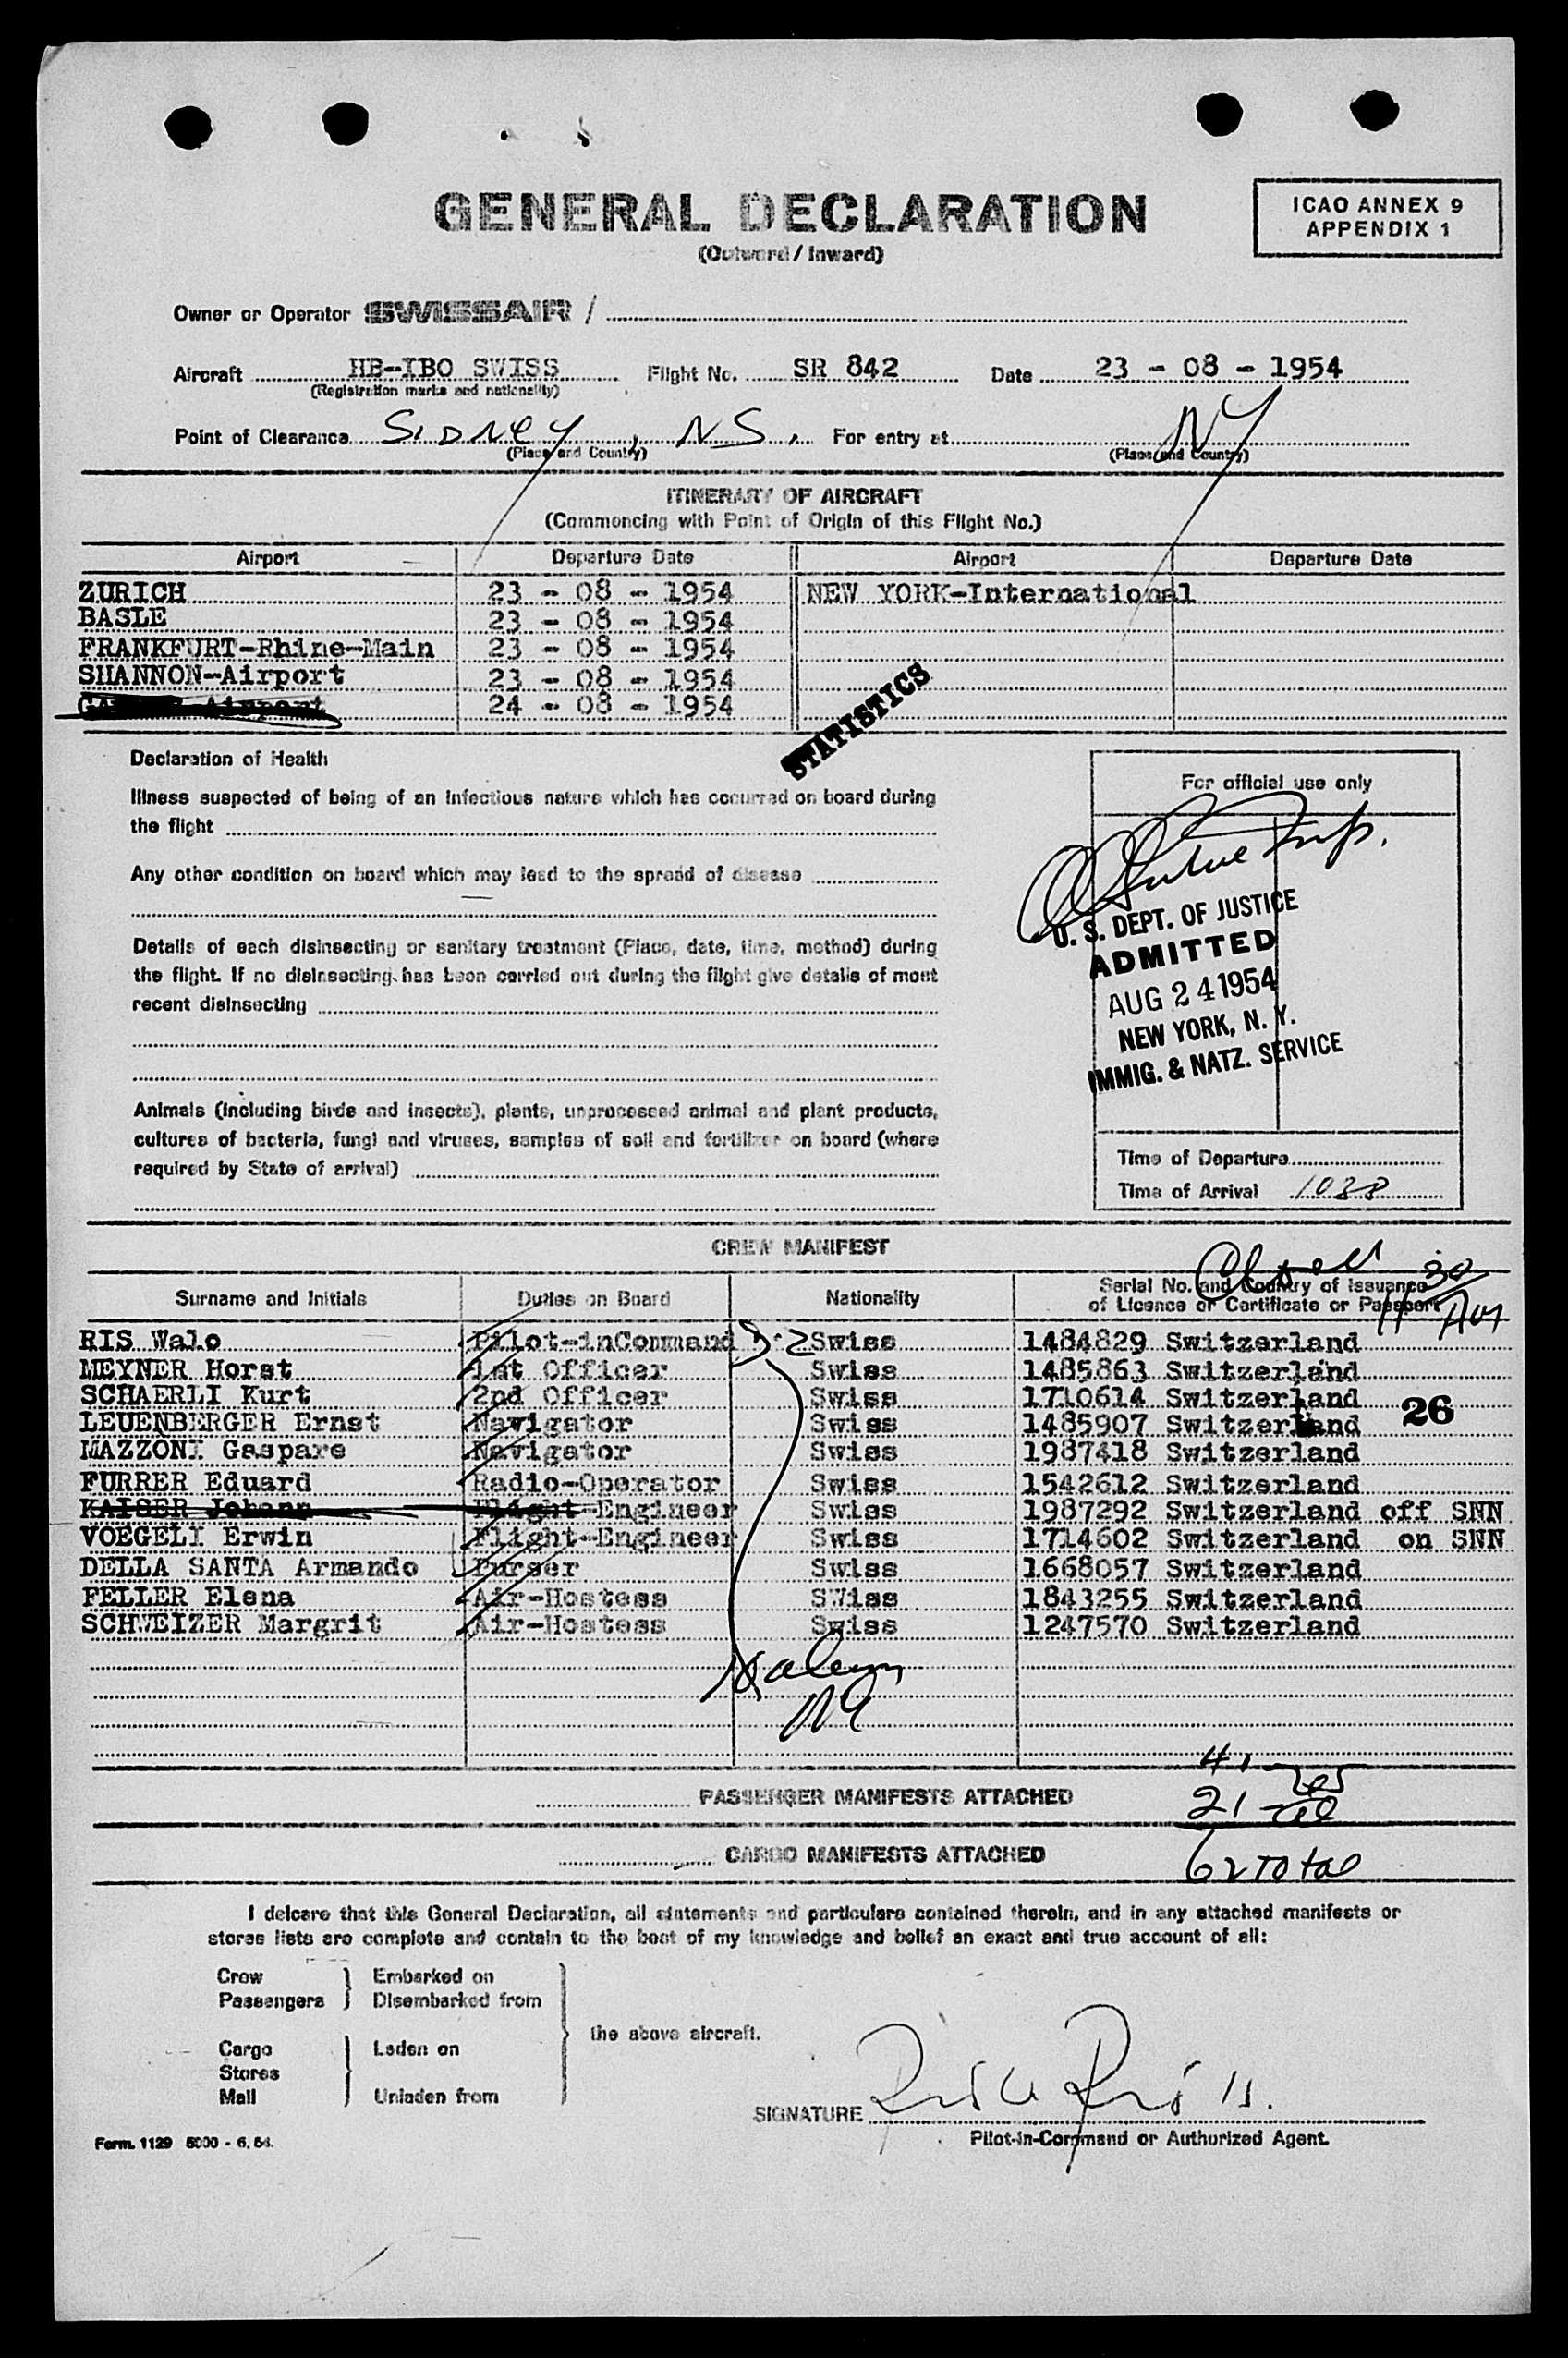 GENERAL DECLARATION
(Outward / Inward)
ICAO ANNEX 9
APPENDIX 1
Owner or Operator SWISSAIR /
Aircraft HB-IBO SWISS Flight No. SR 842 Date 23 - 08 - 1954
(Registration marks and nationality)
Point of Clearance SIDNEY, NS. For entry at NY
(Place and Country) (Place and Country)
ITINERARY OF AIRCRAFT
(Commencing with Point of Origin of this Flight No.)
Airport Departure Date Airport Departure Date
ZURICH 23 - 08 - 1954 NEW YORK-International
BASLE 23 - 08 - 1954
FRANKFURT-Rhine-Main 23 - 08 - 1954
SHANNON-Airport 23 - 08 - 1954
Airport 24 - 08 - 1954
STATISTICS
Declaration of Health
Illness suspected of being of an infectious nature which has occurred on board during
the flight
Any other condition on board which may lead to the spread of disease
Details of each disinsecting or sanitary treatment (Place, date, time, method) during
the flight. If no disinsecting has been carried out during the flight give details of most
recent disinsecting
Animals (including birds and insects), plants, unprocessed animal and plant products,
cultures of bacteria, fungi and viruses, samples of soil and fertilizer on board (where
required by State of arrival)
For official use only
U. S. DEPT. OF JUSTICE
ADMITTED
AUG 24 1954
NEW YORK, N. Y.
IMMIG. & NATZ. SERVICE
Time of Departure
Time of Arrival 1038
CREW MANIFEST
Surname and Initials Duties on Board Nationality Serial No. and Country of Issuance
of Licence or Certificate or Passport
RIS Walo Pilot-inCommand Swiss 1484829 Switzerland
MEYNER Horst 1st Officer Swiss 1485863 Switzerland
SCHAERLI Kurt 2nd Officer Swiss 1710614 Switzerland
26
LEUENBERGER Ernst Navigator Swiss 1485907 Switzerland
MAZZONI Gaspare Navigator Swiss 1987418 Switzerland
FURRER Eduard Radio-Operator Swiss 1542612 Switzerland
KAISER Johann Flight-Engineer Swiss 1987292 Switzerland off SNN
VOEGELI Erwin Flight-Engineer Swiss 1714602 Switzerland on SNN
DELLA SANTA Armando Purser Swiss 1668057 Switzerland
FELLER Elena Air-Hostess SWiss 1843255 Switzerland
SCHWEIZER Margrit Air-Hostess Swiss 1247570 Switzerland
41
PASSENGER MANIFESTS ATTACHED 21
CARGO MANIFESTS ATTACHED 62 Total
I delcare that this General Declaration, all statements and particulars contained therein, and in any attached manifests or
stores lists are complete and contain to the best of my knowledge and belief an exact and true account of all:
Crew Embarked on
Passengers Disembarked from
the above aircraft.
Cargo Laden on
Stores
Mail Unladen from
SIGNATURE
Pilot-in-Command or Authorized Agent.
Form. 1129 5000 - 6. 54.